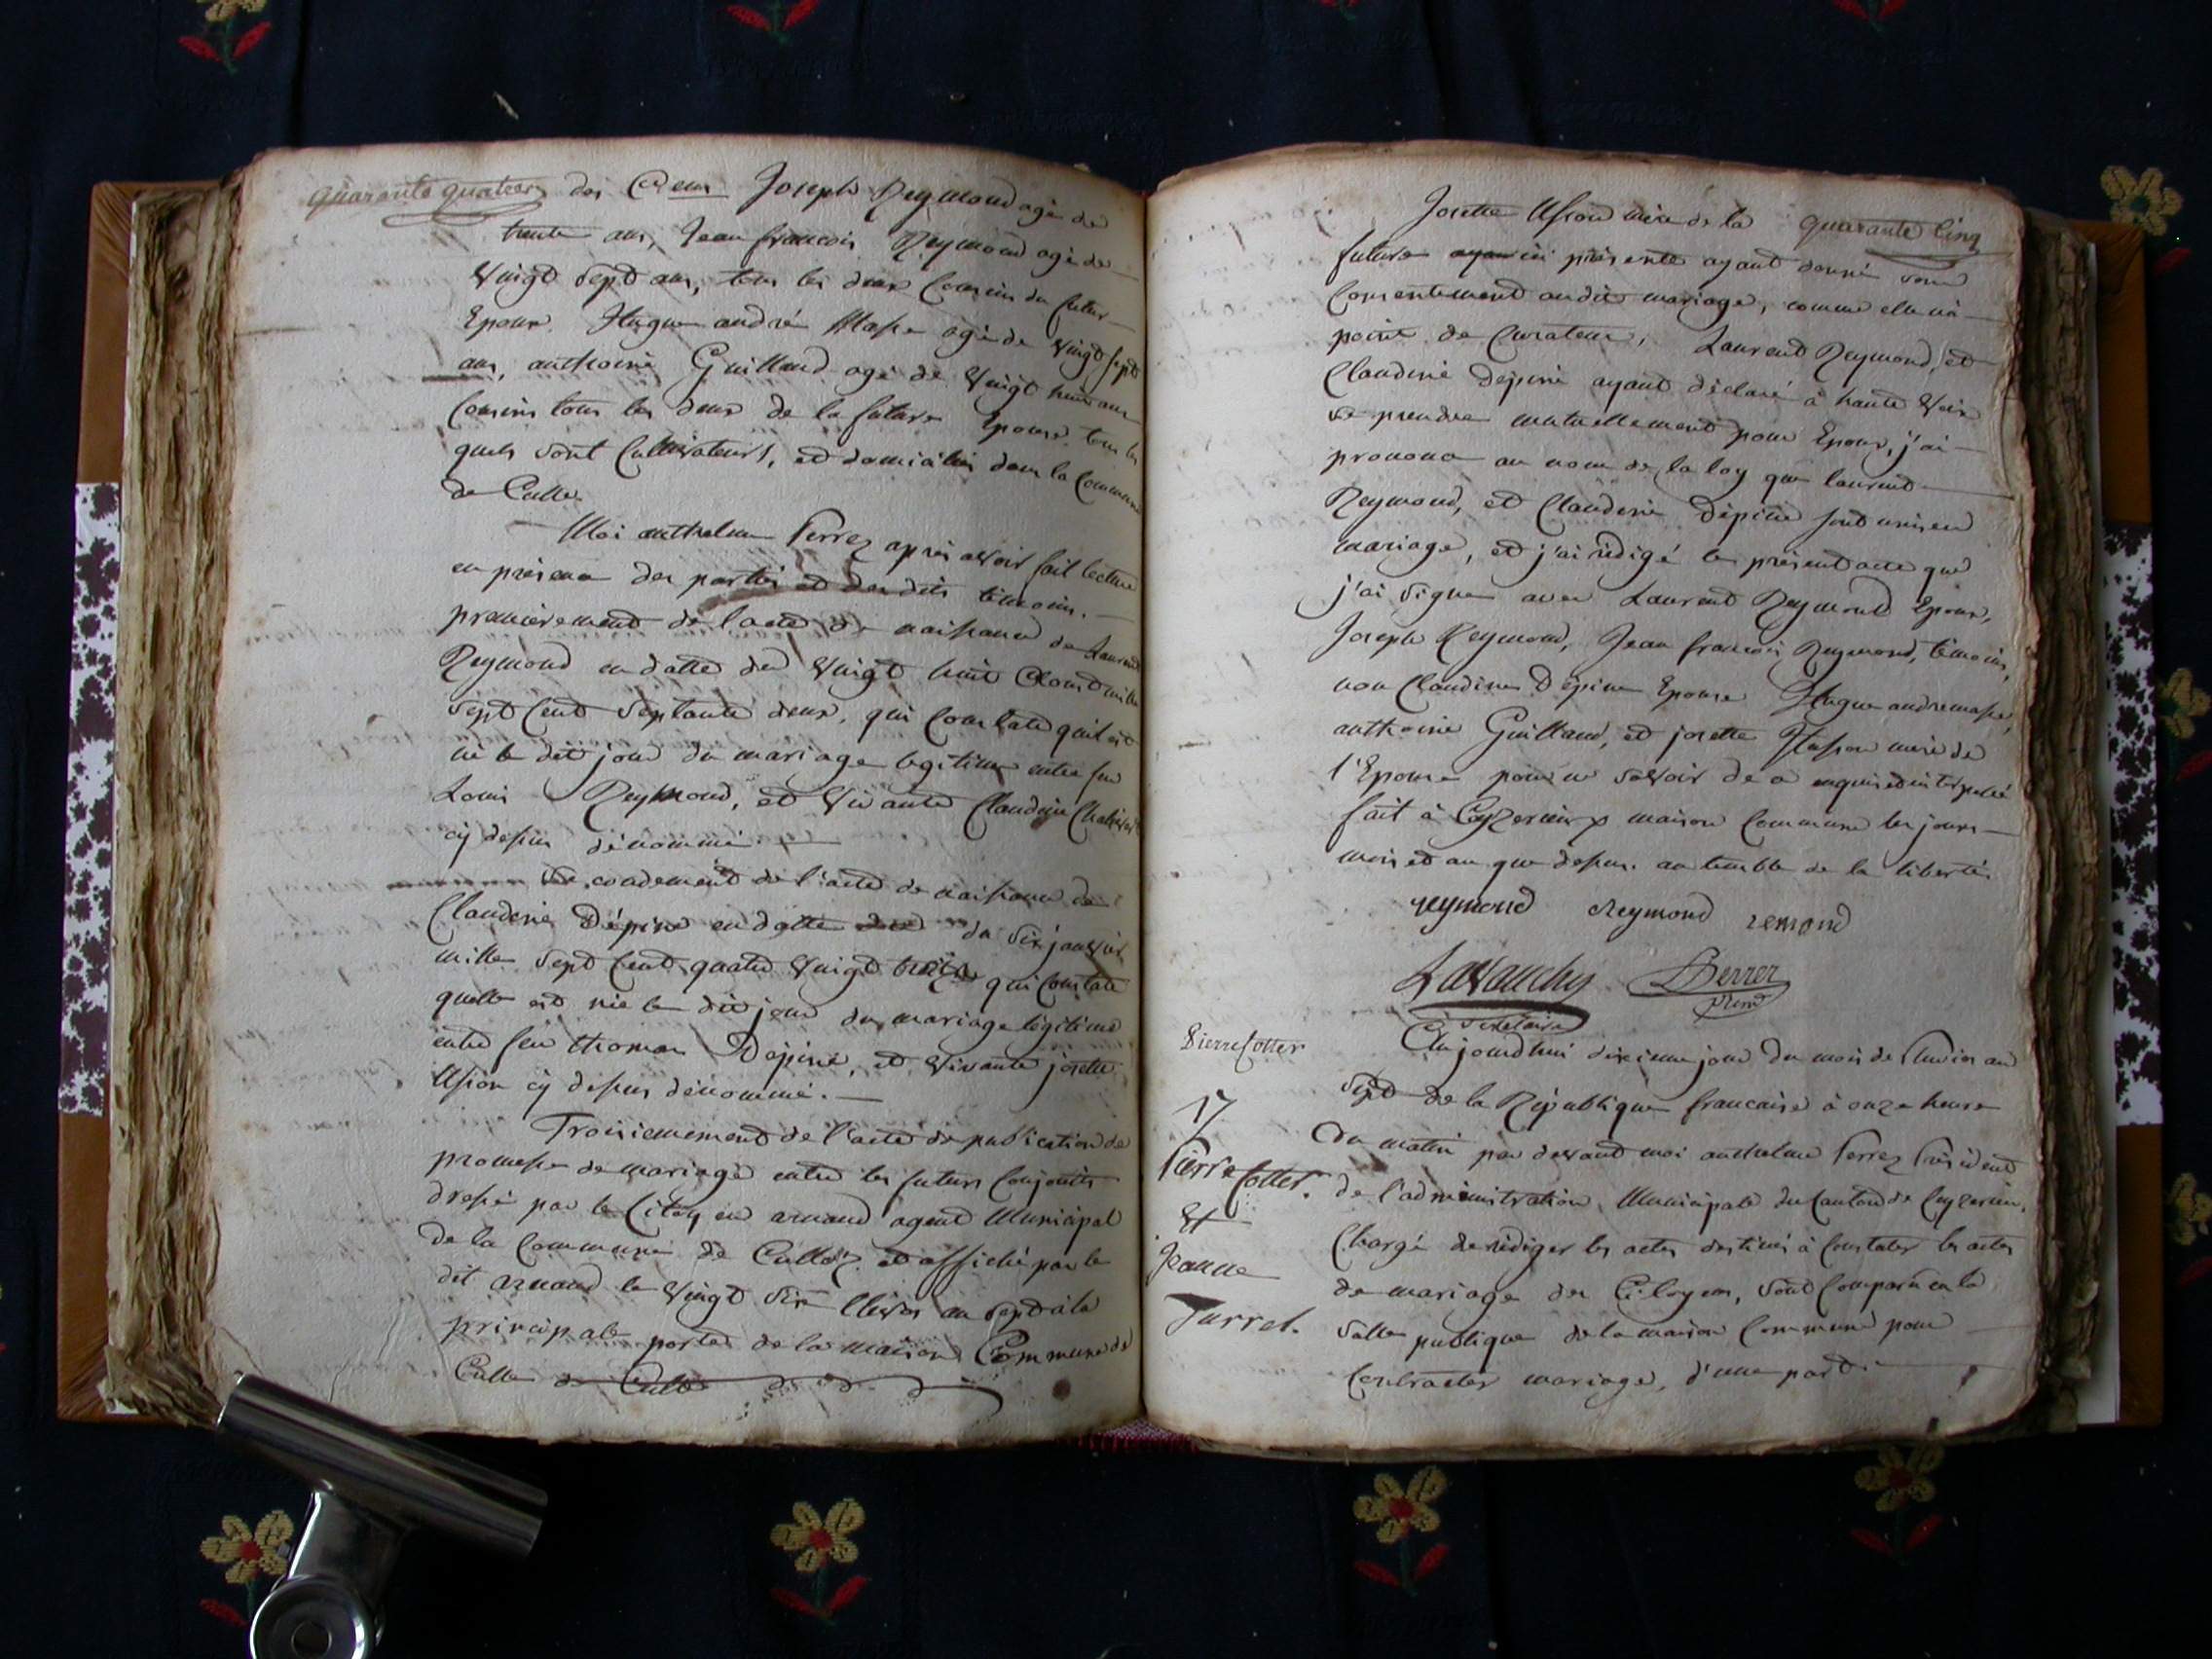 quarante quatre des Cens Joseph Reymond agé de
trente ans, Jean francois Reymond agé de
Vingt Sept ans, tous les deux Cousins du futur
Epoux. Hugue andré Masse agé de Vingt Sept
ans, anthoine Guillaud agé de Vingt huit ans
Cousins tous les deux de la future Epouse, tous les
quels sont Cultivateurs, et domiciliés dans la Commune
de Culle
Moi anthelme Perrez après avoir fait lecture
en présence des parties et des dits témoins.
premièrement de l'acte de naissance de Laurent
Reymond en datte du Vingt huit aoust mille
Sept Cent Septante deux, qui Constate quil est
né le dit jour du mariage légitime entre feu
Louis Reymond, et Vivante Claudine
cy dessus dénommé.
Secondement de l'acte de naissance de
Claudine Dépine en datte du Six janvier
mille Sept Cent quatre Vingt qui Constate
quelle est née le dit jour du mariage légitime
entre feu thomas Dépine, et Vivante josette
cy dessus dénommé.
Troisiemement de l'acte de publication de
promesse de mariage entre les futurs Conjoints
dressé par le Citoyen arnaud agent Municipal
de la Commune de Culloz et affiché par le
dit arnaud le Vingt Six Nivos an Sept à la
principale porte de la maison Commune de
Culle de Culle
Josette mère de la quarante Cinq
future ici présente ayant donné son
Consentement au dit mariage, comme elle n'a
point de Curateur, Laurent Reymond, et
Claudine Dépine ayant déclaré à haute Voix
se prendre mutuellement pour Epoux, j'ai
prononcé au nom de la loy que laurent
Reymond, et Claudine Dépine sont unis en
mariage, et j'ai rédigé le présent acte que
j'ai signé avec Laurent Reymond Epoux,
Joseph Reymond, Jean francois Reymond, témoins,
non Claudine Dépine Epouse Hugue andre masse,
anthoine Guillaud, et josette mère de
l'Epouse pour ne savoir de ce enquis et interpellé
fait à Ceyzerieux maison Commune les jours
mois et an que dessus. au temble de la liberté
reymond Reymond remond
Lavauchy Perrez
Secretaire Prend
Pierre Cottet
Aujourdhui sixieme jour du mois de Pluvios an
Sept de la République francaise à onze heure
du matin par devant moi anthelme Perrez Président
de l'administration Municipale du Canton de Ceyzerieu,
Chargé de rédiger les actes destinés à Constater les actes
de mariage des Citoyens, sont Comparu en la
salle publique de la maison Commune pour
Contracter mariage, d'une part
17
Pierre Cottet.
Et
Jeanne
Jurret.